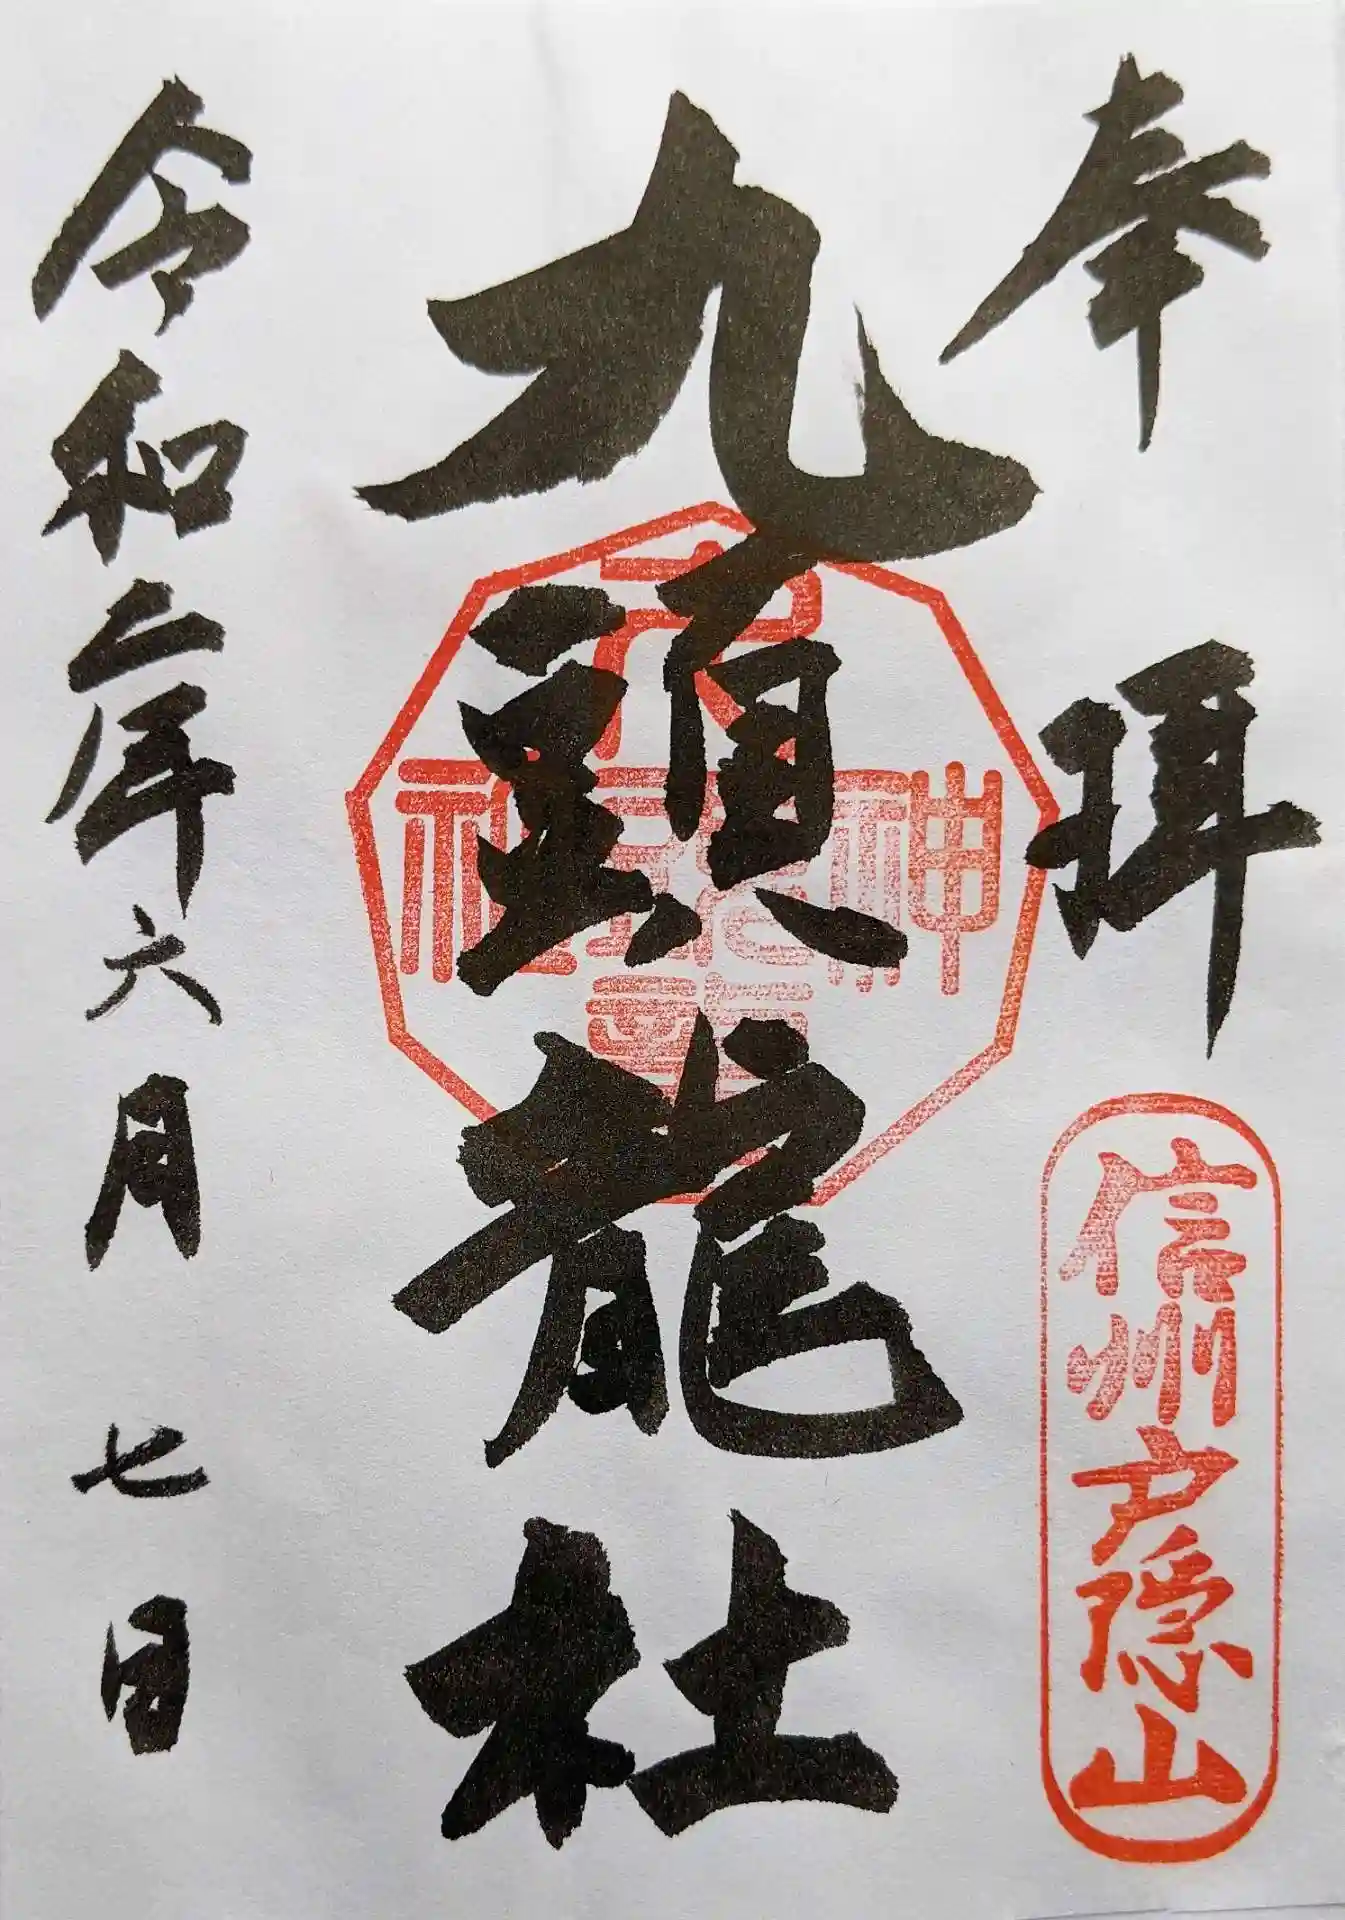 奉拝
信州戸隠山
九頭龍社
九頭龍神社
令和二年六月七日